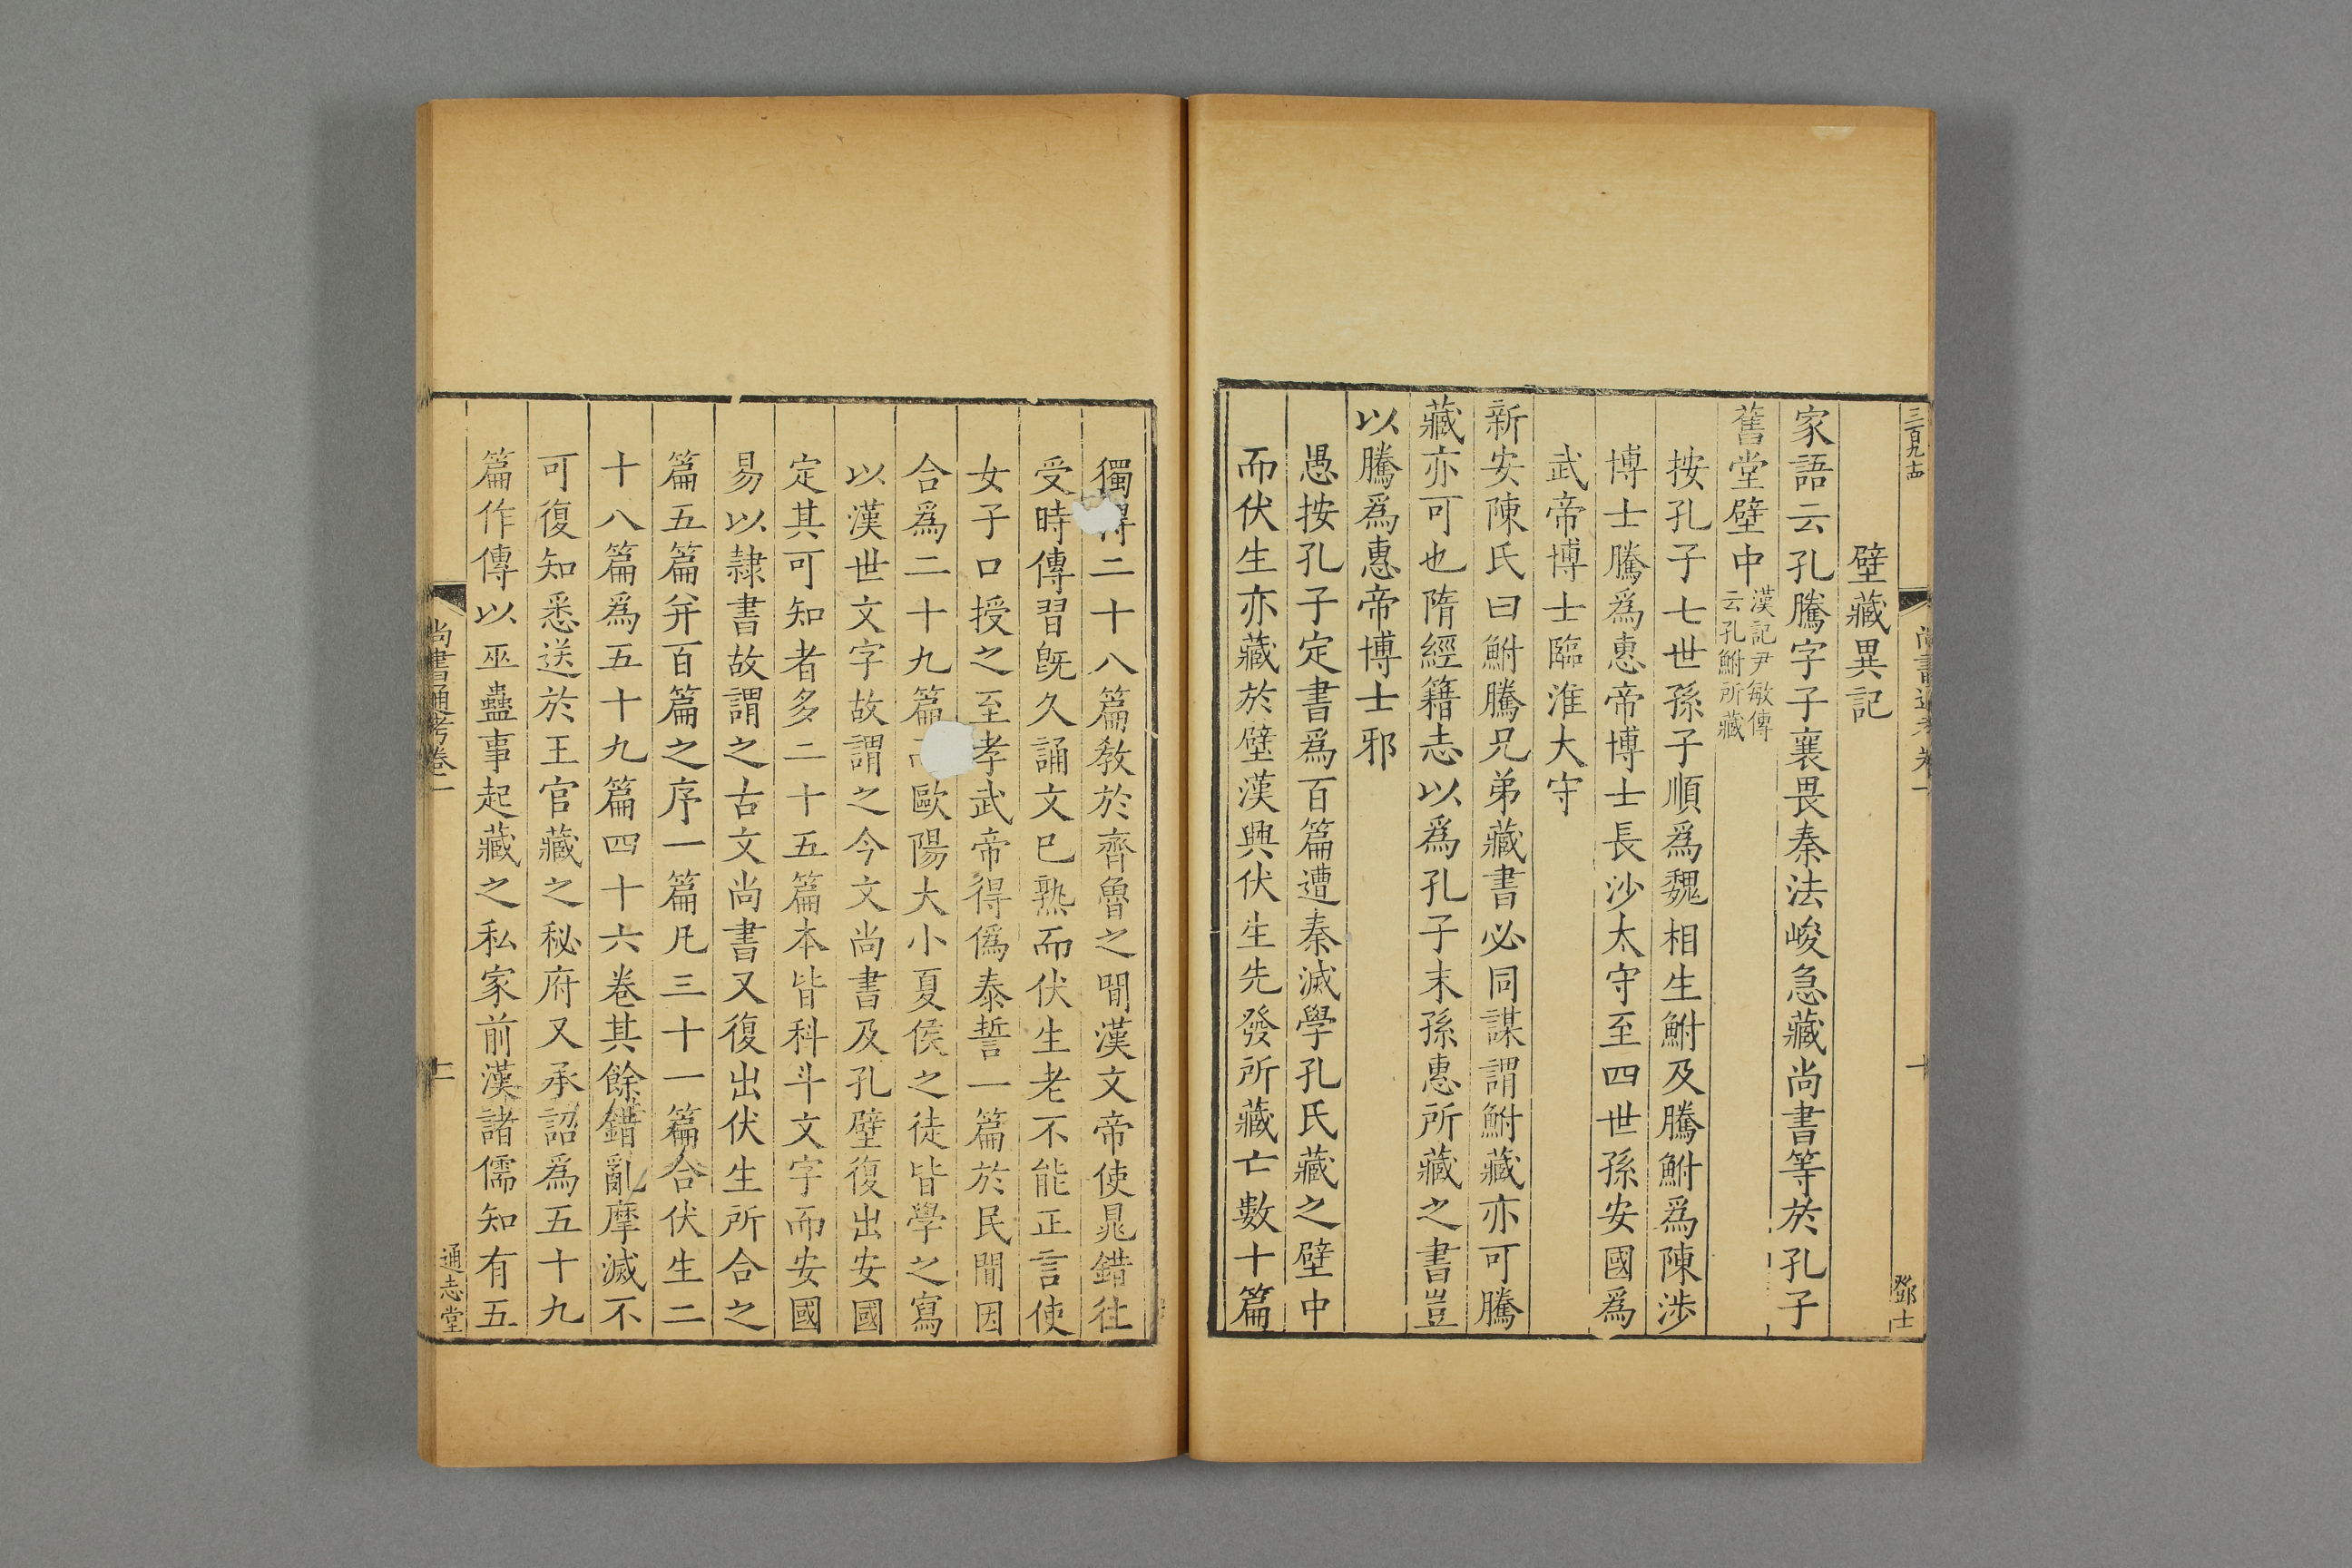 三百九十四
壁藏異記
家語云孔騰字子襄畏秦法峻急藏尚書等於孔子
舊堂壁中漢記尹敏傳
云孔鮒所藏
按孔子七世孫子順爲魏相生鮒及騰鮒爲陳涉
博士騰爲惠帝博士長沙太守至四世孫安國爲
武帝博士臨淮大守
新安陳氏曰鮒騰兄弟藏書必同謀謂鮒藏亦可騰
藏亦可也隋經籍志以爲孔子末孫惠所藏之書豈
以騰爲惠帝博士邪
愚按孔子定書爲百篇遭秦滅學孔氏藏之壁中
而伏生亦藏於壁漢興伏生先發所藏亡數十篇
鄧士
獨二十八篇敎於齊魯之閒漢文帝使晁錯往
受時傳習旣久誦文已熟而伏生老不能正言使
女子口授之至孝武帝得僞泰誓一篇於民閒因
合爲二十九篇歐陽大小夏侯之徒皆學之寫
以漢世文字故謂之今文尚書及孔壁復出安國
定其可知者多二十五篇本皆科斗文字而安國
易以隷書故謂之古文尚書又復出伏生所合之
篇五篇幷百篇之序一篇凡三十一篇合伏生二
十八篇爲五十九篇四十六卷其餘錯亂摩滅不
可復知悉送於王官藏之秘府又承詔爲五十九
篇作傳以巫蠱事起藏之私家前漢諸儒知有五
尚書通考卷一
通志堂